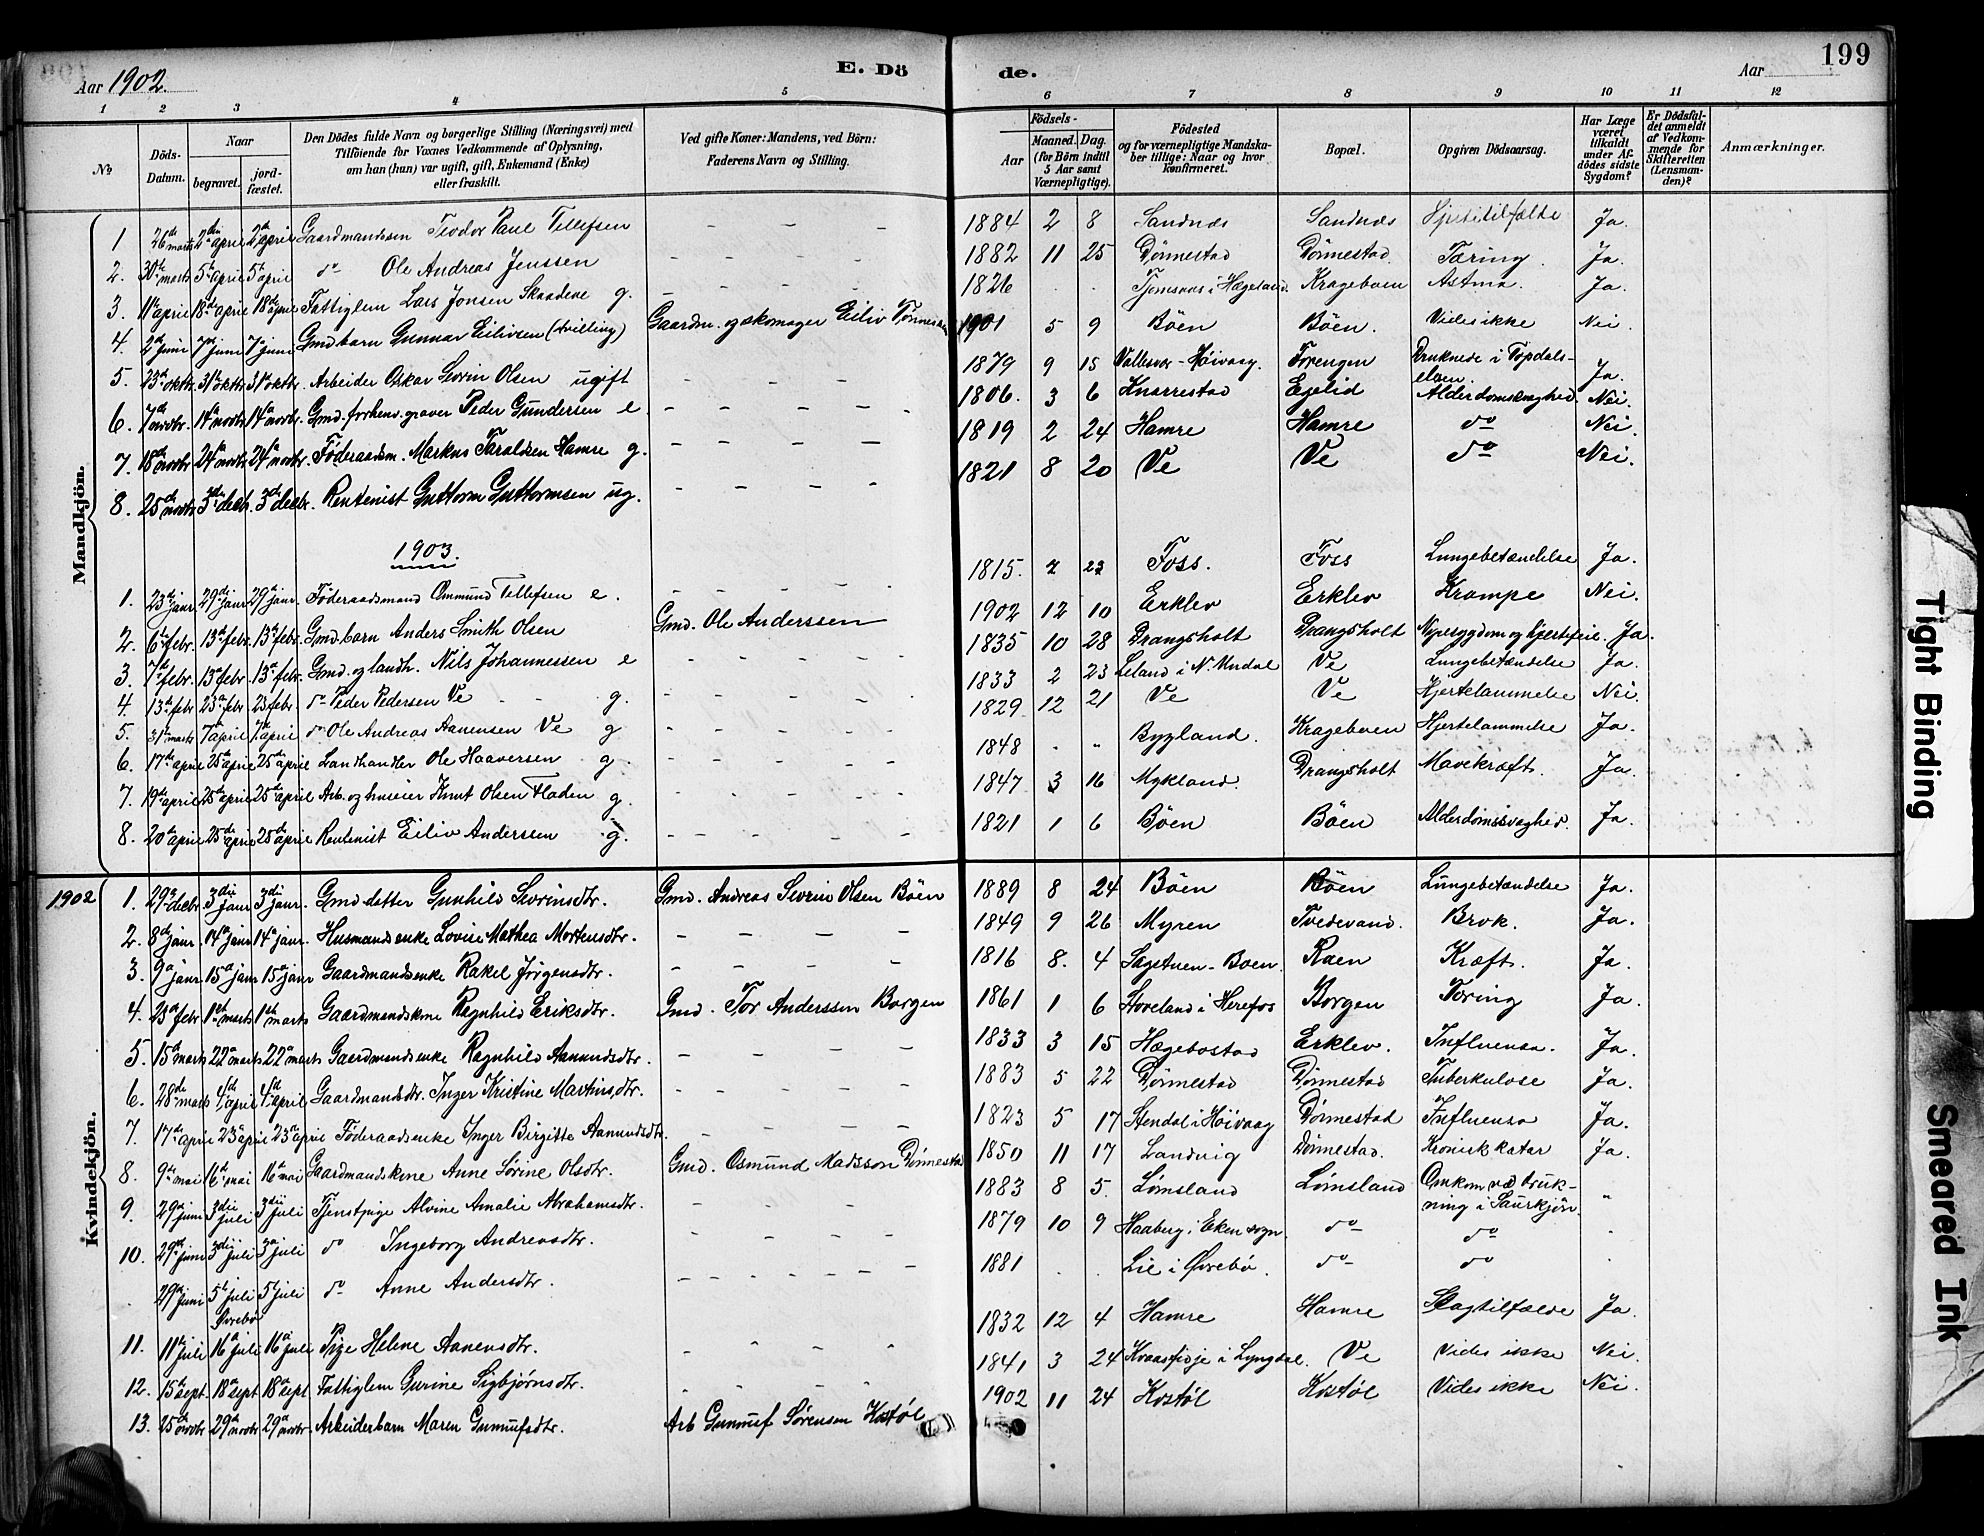 Aar 1902. E. Dö de. Aar 199
1 2 3 4 5 6 7 8 9 10 11 12
No
Döds-Datum.
Naar
begravet.
jord-fæstet.
Den Dödes fulde Navn og borgerlige Stilling (Næringsvei) med
Tilföiende for Voxnes Vedkommende af Oplysning,
om han (hun) var ugift, gift, Enkemand (Enke)
eller fraskilt.
Ved gifte Koner: Mandens, ved Börn:
Faderens Navn og Stilling.
Födsels-
Aar
Maaned. Dag.
(for Börn indtil
5 Aar samt
Værnepligtige).
Födested
og for værnepligtige Mandska-
ber tillige: Naar og hvor
konfirmeret.
Bopæl.
Opgiven Dödsaarsag.
Har Læge
været
tilkaldt
under Af-
dödes sidste
Sygdom?
Er Dödsfal-
det anmeldt
af Vedkom-
mende for
Skifteretten
(Lensman-
den)?
Anmærkninger.
Mandkjön.
1 26de marts 2den april 2den april Gaardmandssøn Teodor Paul Tellefsen - - - - 1884 2 8 Sandnæs Sandnæs Hjertetilfælde Ja.
2. 30te marts 5te april 5te april do Ole Andreas Jenssen - - - - 1882 11 25 Dønnestad Dønnestad. Tæring. Ja.
3. 11te april 18de april 18de april Fattiglem Lars Jonsen Skaadene g. - - - - 1826 . . Tjomsnæs i Hægeland. Krageboen Astma. Ja.
4. 2den juni 7de juni 7de juni Gmd barn Gunnar Eilivsen (tvilling) Gaardm. og skomager Eiliv Tønnessen 1901 5 9 Böen Böen. Vides ikke Nei.
5. 23de oktbr 31te oktbr 31te oktbr. Arbeider Oskar Severin Olsen ugift 1879 9 15 Vallesvær - Høivaag. Forengen Druknede i Topdals-
elven. Ja.
6. 7de novbr. 14de novbr. 14de novbr. Gmd. forhenv. graver Peder Gundersen e. - - - - 1806. 3 6 Knarrestad Egelid Alderdomssvaghed. Nei.
7. 18de novbr 24de novbr. 24de novbr. Föderaadsm. Markus Taraldsen Hamre g. - - - - 1819 2 24 Hamre Hamre do Nei.
8. 25de novbr. 3die decbr. 3die decbr. Rentenist Guttorm Guttormsen ug. - - - - 1821 8 20 Ve Ve do Nei.
1903.
1. 23de januar 29de januar 29de januar. Föderaadsmand Ommund Tellefsen e. - - - - 1815. 2 23 Foss. Foss Lungebetændelse Ja.
2. 6te febr. 13de febr. 13de febr. Gmd. barn Anders Smith Olsen Gmd. Ole Anderssen 1902 12 10 Erklev Erklev Krampe Nei.
3. 7de febr. 13de febr. 13de febr. Gmd. og landh. Nils Johannessen e - - - - 1835 10 28 Drangsholt Drangsholt Nyresygdom og hjertefeil. Ja.
4. 13de febr 23de febr 23 febr. do Peder Pedersen Ve g. - - - - 1833 2 23 Leland i N. Undal Ve Lungebetændelse Ja.
5. 31te marts 7de april 7de april do Ole Andreas Aanensen Ve g - - - - 1829 12 21 Ve Ve Hjertelammelse Nei.
6. 17de april 25de april 25de april Landhandler Ole Haaversen g. - - - - 1848 . " Bygland. Krageboen Hjertelammelse Ja.
7. 19de april 25de april 25de april. Arb. og huseier Knut Olsen Fladen g. - - - - 1847 3 16 Mykland. Drangsholt Mavekræft. Ja.
8. 20de april 25de april 25de april Rentenist Eiliv Anderssen g. - - - - 1821 1 6 Böen Böen Alderdomssvaghed. Ja.
Kvindekjön.
1902 1. 29de decbr 3die januar 3die januar. Gmd datter Gunhild Sevrinsdtr. Gmd. Andreas Severin Olsen Böen 1889 8 24 Böen Böen Lungebetændelse Ja.
2. 8de januar. 14de januar 14de januar. Husmandsenke Lovise Mathea Mortensdtr. - - - - 1849 9 26 Myren Tvedevand. Brok. Ja.
3. 9de januar 15de januar 15de januar Gaardmandsenke Rakel Jörgensdtr. - - - - 1816 8. 4 Sagetuen - Boen. Raen Kræft. Ja.
4. 23de febr 1ste marts 1ste marts Gaardmandskone Ragnhild Eriksdtr. Gmd. Tor Anderssen Borgen 1861 1 6 Stoveland i Herefos Borgen Tæring Ja.
5. 15de marts 22de marts 22de marts Gaardmandsenke Ragnhild Aanundsdtr. - - - - 1833 3 15 Hægebostad Erklev. Influensa. Ja.
6. 28de marts 4de april 4de april Gaardmandsdtr. Inger Kristine Martinsdtr. - - - - 1883 5 22 Dønnestad Dønnestad Tuberkulose Ja.
7. 17de april 23de april 23de april Föderaadsenke Inger Birgitte Aanundsdtr. - - - - 1823 5 17 Stendal i Höivaag Dønnestad Influensa Ja.
8. 9de mai 16de mai 16de mai Gaardmandskone Anne Sörine Olsdtr. Gmd. Osmund Madsson Dønnestad 1850 11 17 Landvig Dønnestad. Kronisk katar Ja.
9. 29de juni 3die juli 3die juli Tjenstpige Alvine Amalie Abrahamsdtr. - - - - 1883 8 5. Lømsland Lømsland Omkom ved druk-
ning i Saurkjøn. "
10. 29de juni 3die juli 3die juli do Ingeborg Andreasdtr. - - - - 1879 10 9 Haaberg i Eken sogn. do do "
29de juni 5te juli 5te juli do Anne Andersdtr. - - - - 1881 . . Lie i Øvrebø. do do "
Øvrebø
11. 11te juli 16de juli 16de juli Pige Helene Aanensdtr. - - - - 1832 12 4 Hamre Hamre Slagtilfælde Ja.
12. 15de sept. 18de sept 18de sept. Fattiglem Gurine Sigbjørnsdtr. - - - - 1841 3 24 Kvaasfisje i Lyngdal. Ve Vides ikke Nei.
13. 25de novbr 29de novbr 29de novbr. Arbeiderbarn Maren Gunnufsdtr. Arb Gunnuf Sørensen Kostøl 1902 11 24 Kostøl Kostøl Vides ikke Nei.
Tight Binding
Smeared Ink